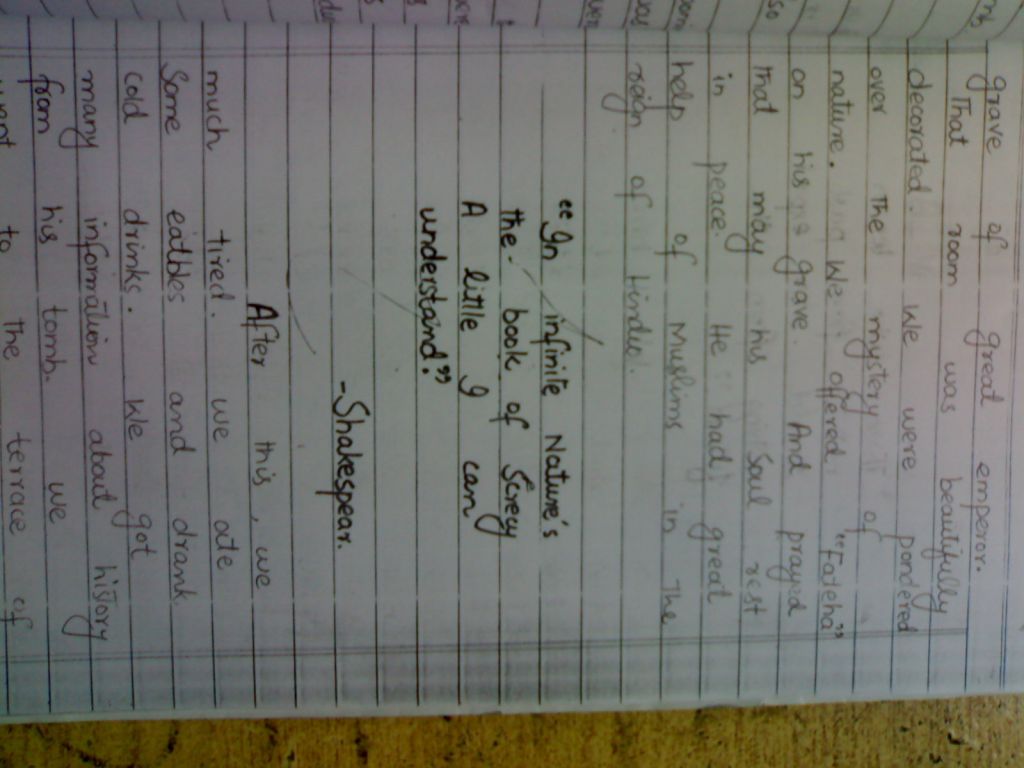 grave of great emperor.
That room was beautifully
decorated. We were pondered
over The mystery of
nature. We offered "Fadeha"
on his grave. And prayed
that may his Soul rest
in peace. He had great
help of Muslims in The
reign of Hindu.
"In infinite Nature's
the book of Screy
A little I can
understand."
-Shakespear.
After this, we
much tired. we ate
Some eatbles and drank
cold drinks. We got
many information about history
from his tomb. we
went to the terrace of